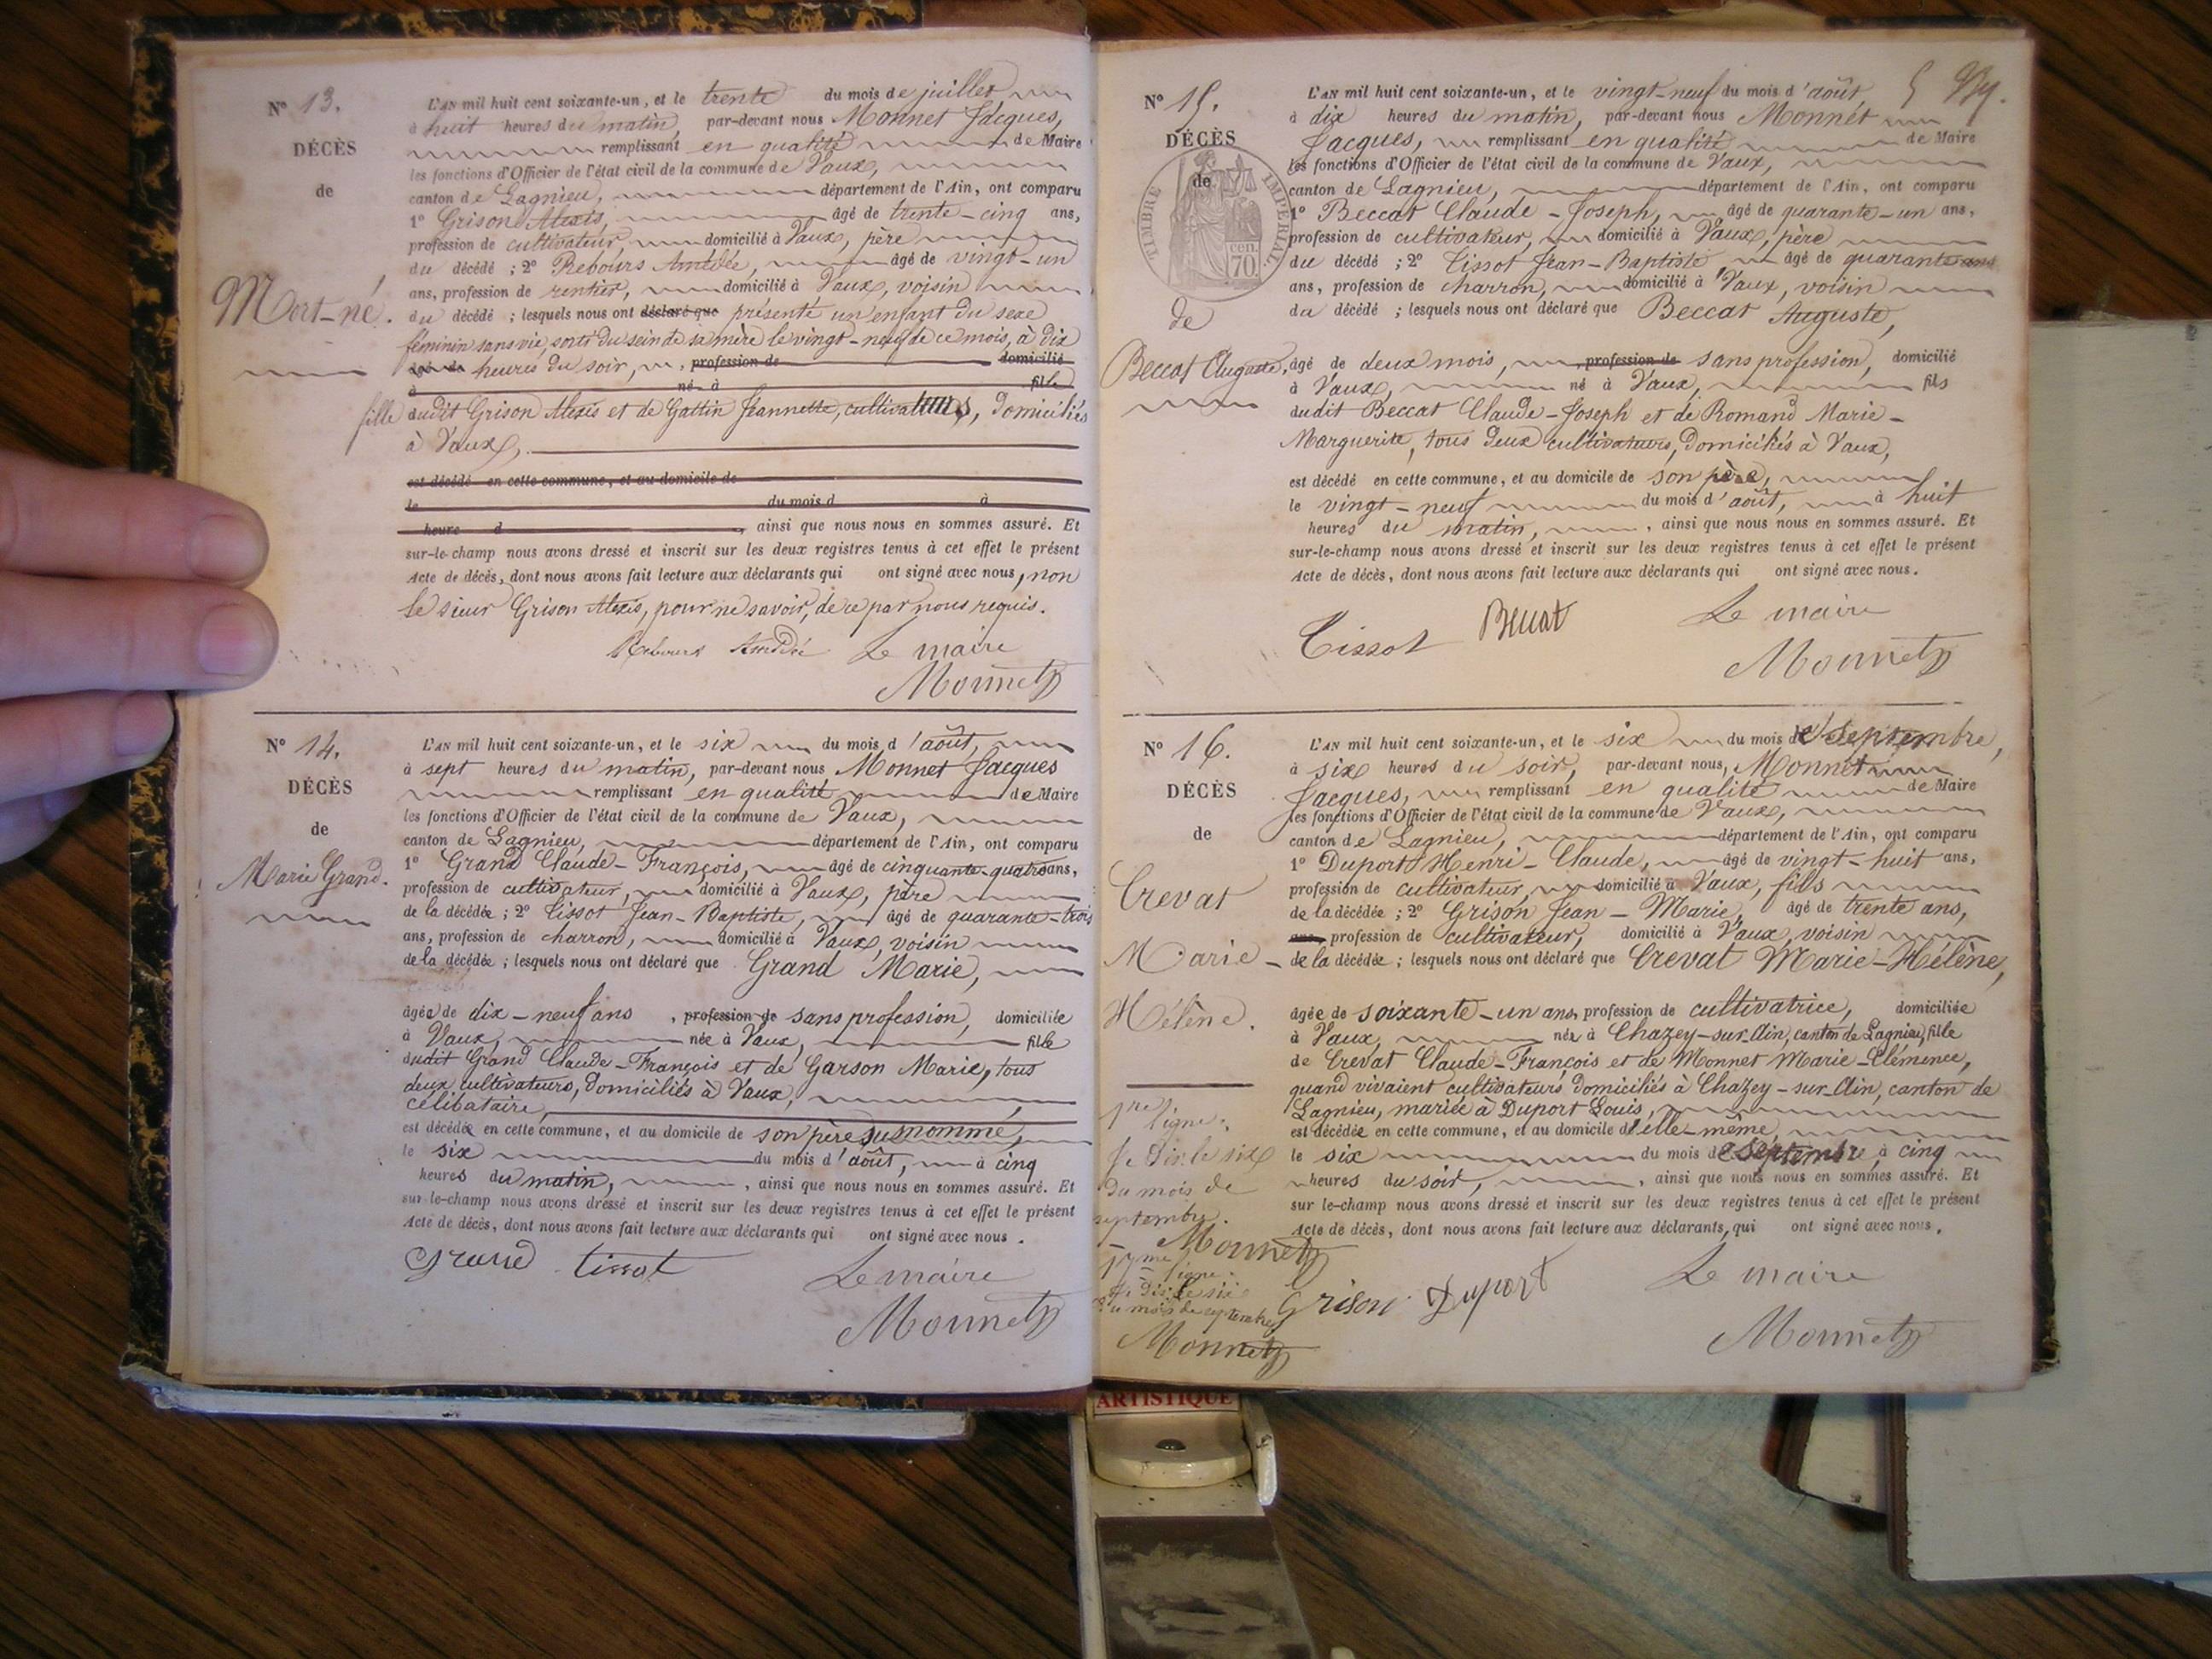 N° 13.
DÉCÈS
de
Mort-né.
L'AN mil huit cent soixante-un, et le trente du mois de juillet
à huit heures du matin, par-devant nous Monnet Jacques,
remplissant en qualité de Maire
les fonctions d'Officier de l'état civil de la commune de Vaux,
canton de Lagnieu, département de l'Ain, ont comparu
1° Grison Alexis, âgé de trente-cinq ans,
profession de cultivateur, domicilié à Vaux, père
du décédé ; 2° Rebours Amédée, âgé de vingt-un
ans, profession de rentier, domicilié à Vaux, voisin
du décédé ; lesquels nous ont déclaré que présenté un enfant du sexe
féminin sans vie, sorti du sein de sa mère le vingt-neuf de ce mois, à dix
âgé de heures du soir, profession de domicilié
à né à fils
fille dudit Grison Alexis et de Gattin Jeannette, cultivateurs, domiciliés
à Vaux,
est décédé en cette commune, et au domicile de
le du mois d à
heure d , ainsi que nous nous en sommes assuré. Et
sur-le-champ nous avons dressé et inscrit sur les deux registres tenus à cet effet le présent
Acte de décès, dont nous avons fait lecture aux déclarants qui ont signé avec nous, non
le sieur Grison Alexis, pour ne savoir, de ce par nous requis.
Rebours Amédée Le maire
Monnet
N° 14.
DÉCÈS
de
Marie Grand.
L'AN mil huit cent soixante-un, et le six du mois d'août,
à sept heures du matin, par-devant nous Monnet Jacques
remplissant en qualité de Maire
les fonctions d'Officier de l'état civil de la commune de Vaux,
canton de Lagnieu, département de l'Ain, ont comparu
1° Grand Claude-François, âgé de cinquante-quatre ans,
profession de cultivateur, domicilié à Vaux, père
de la décédée ; 2° Tissot Jean-Baptiste, âgé de quarante-trois
ans, profession de charron, domicilié à Vaux, voisin
de la décédée ; lesquels nous ont déclaré que Grand Marie,
âgée de dix-neuf ans, profession de sans profession, domiciliée
à Vaux, née à Vaux, fille
dudit Grand Claude-François et de Garson Marie, tous
deux cultivateurs, domiciliés à Vaux,
célibataire,
est décédée en cette commune, et au domicile de son père susnommé,
le six du mois d'août, à cinq
heures du matin, , ainsi que nous nous en sommes assuré. Et
sur-le-champ nous avons dressé et inscrit sur les deux registres tenus à cet effet le présent
Acte de décès, dont nous avons fait lecture aux déclarants qui ont signé avec nous.
Grand Tissot Le maire
Monnet
N° 15.
DÉCÈS
de
TIMBRE IMPÉRIAL
70 cen.
de
Beccat Auguste,
5
L'AN mil huit cent soixante-un, et le vingt-neuf du mois d'août
à dix heures du matin, par-devant nous Monnet
Jacques, remplissant en qualité de Maire
les fonctions d'Officier de l'état civil de la commune de Vaux,
canton de Lagnieu, département de l'Ain, ont comparu
1° Beccat Claude-Joseph, âgé de quarante-un ans,
profession de cultivateur, domicilié à Vaux, père
du décédé ; 2° Tissot Jean-Baptiste âgé de quarante ans
ans, profession de charron, domicilié à Vaux, voisin
du décédé ; lesquels nous ont déclaré que Beccat Auguste,
âgé de deux mois, profession de sans profession, domicilié
à Vaux, né à Vaux, fils
dudit Beccat Claude-Joseph et de Romand Marie-
Marguerite, tous deux cultivateurs, domiciliés à Vaux,
est décédé en cette commune, et au domicile de son père,
le vingt-neuf du mois d'août, à huit
heures du matin, , ainsi que nous nous en sommes assuré. Et
sur-le-champ nous avons dressé et inscrit sur les deux registres tenus à cet effet le présent
Acte de décès, dont nous avons fait lecture aux déclarants qui ont signé avec nous.
Tissot Beccat Le maire
Monnet
N° 16.
DÉCÈS
de
Crevat
Marie-
Hélène.
L'AN mil huit cent soixante-un, et le six du mois de septembre,
à six heures du soir, par-devant nous, Monnet
Jacques, remplissant en qualité de Maire
les fonctions d'Officier de l'état civil de la commune de Vaux,
canton de Lagnieu, département de l'Ain, ont comparu
1° Duport Henri-Claude, âgé de vingt-huit ans,
profession de cultivateur, domicilié à Vaux, fils
de la décédée ; 2° Grison Jean-Marie, âgé de trente ans,
ans, profession de cultivateur, domicilié à Vaux, voisin
de la décédée ; lesquels nous ont déclaré que Crevat Marie-Hélène,
âgée de soixante-un ans, profession de cultivatrice, domiciliée
à Vaux, née à Chazey-sur-Ain, canton de Lagnieu, fille
de Crevat Claude-François et de Monnet Marie-Clémence,
quand vivaient cultivateurs domiciliés à Chazey-sur-Ain, canton de
Lagnieu, mariée à Duport Louis,
est décédée en cette commune, et au domicile d'elle-même,
le six du mois de septembre, à cinq
heures du soir, , ainsi que nous nous en sommes assuré. Et
sur-le-champ nous avons dressé et inscrit sur les deux registres tenus à cet effet le présent
Acte de décès, dont nous avons fait lecture aux déclarants, qui ont signé avec nous.
1re ligne.
Je dis: le six
du mois de
septembre.
Monnet
ligne.
Je dis: le six
du mois de septembre
Monnet
Grison Duport Le maire
Monnet
ARTISTIQUE